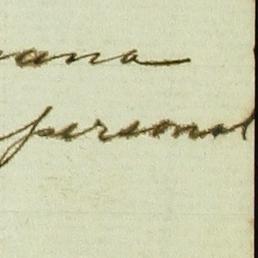 ana
personal